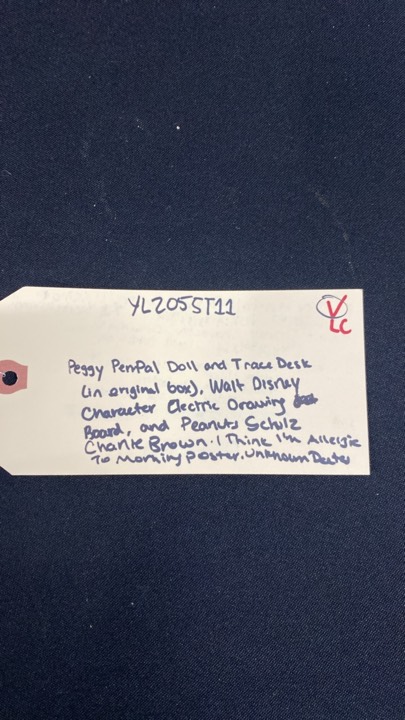 YL2055T11
V
LC
Peggy PenPal Doll and Trace Desk
(in original box), Walt Disney
Character Electric Drawing
Board, and Peanuts Schulz
Charlie Brown. I Think I'm Allergic
To Morning Poster. Unknown Dates